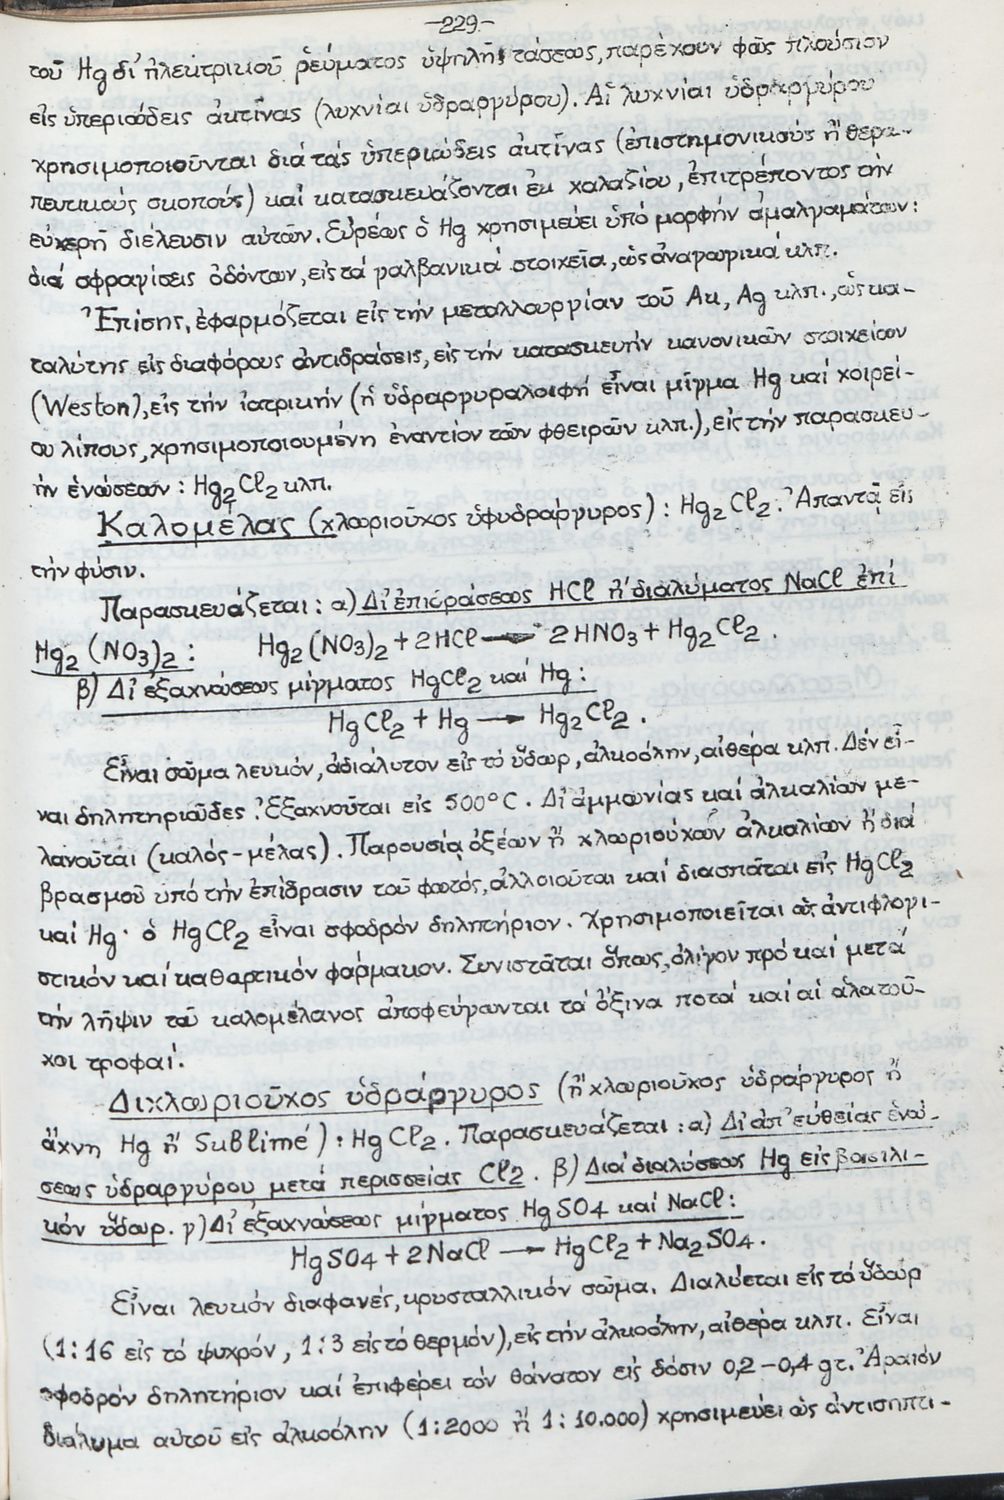 -229-
τοῦ Hg δι' ἠλεκτρικοῦ ῥεύματος ὑψηλῆς τάσεως, παρέχουν φῶς πλούσιον
εἰς ὑπεριώδεις ἀκτῖνας (λυχνίαι ὑδραργύρου). Αἱ λυχνίαι ὑδραργύρου
χρησιμοποιοῦνται διά τάς ὑπεριώδεις ἀκτῖνας (ἐπιστημονικούς ἤ θερα-
πευτικούς σκοπούς) καί κατασκευάζονται ἐκ χαλαζίου, ἐπιτρέποντος τήν
εὐχερῆ διέλευσιν αὐτῶν. Εὐρέως ὁ Hg χρησιμεύει ὑπό μορφήν ἀμαλγαμάτων:
διά σφραγίσεις ὀδόντων, εἰς τά γαλβανικά στοιχεῖα, ὡς ἀναγωγικά κλπ.
Ἐπίσης, ἐφαρμόζεται εἰς τήν μεταλλουργίαν τοῦ Au, Ag κλπ., ὡς κα-
ταλύτης εἰς διαφόρους ἀντιδράσεις, εἰς τήν κατασκευήν κανονικῶν στοιχείων
(Weston), εἰς τήν ἰατρικήν (ἡ ὑδραργυραλοιφή εἶναι μῖγμα Hg καί χοιρεί-
ου λίπους, χρησιμοποιουμένη ἐναντίον τῶν φθειρῶν κλπ.), εἰς τήν παρασκευ-
ήν ἑνώσεων: Hg2Cl2 κλπ.
Καλομέλας (χλωριοῦχος ὑφυδράργυρος): Hg2Cl2. Ἀπαντᾷ εἰς
τήν φύσιν.
Παρασκευάζεται: α) Δι' ἐπιδράσεως HCl ἤ διαλύματος NaCl ἐπί
Hg2(NO3)2: Hg2(NO3)2 + 2HCl → 2HNO3 + Hg2Cl2.
β) Δι' ἐξαχνώσεως μίγματος HgCl2 καί Hg:
HgCl2 + Hg → Hg2Cl2.
Εἶναι σῶμα λευκόν, ἀδιάλυτον εἰς τό ὕδωρ, ἀλκοόλην, αἰθέρα κλπ. Δέν εἶ-
ναι δηλητηριῶδες. Ἐξαχνοῦται εἰς 500°C. Δι' ἀμμωνίας καί ἀλκαλίων με-
λανοῦται (καλός-μέλας). Παρουσίᾳ ὀξέων ἤ χλωριούχων ἀλκαλίων ἤ διά
βρασμοῦ ὑπό τήν ἐπίδρασιν τοῦ φωτός, ἀλλοιοῦται καί διασπᾶται εἰς HgCl2
καί Hg· ὁ HgCl2 εἶναι σφοδρόν δηλητήριον. Χρησιμοποιεῖται ὡς ἀντιφλογι-
στικόν καί καθαρτικόν φάρμακον. Συνιστᾶται ὅπως, ὀλίγον πρό καί μετά
τήν λῆψιν τοῦ καλομέλανος ἀποφεύγωνται τά ὄξινα ποτά καί αἱ ἁλατοῦ-
χοι τροφαί.
Διχλωριοῦχος ὑδράργυρος (ἤ χλωριοῦχος ὑδράργυρος ἤ
ἄχνη Hg ἤ Sublimé): HgCl2. Παρασκευάζεται: α) Δι' ἀπ' εὐθείας ἑνώ-
σεως ὑδραργύρου μετά περισσείας Cl2. β) Διά διαλύσεως Hg εἰς βασιλι-
κόν ὕδωρ. γ) Δι' ἐξαχνώσεως μίγματος HgSO4 καί NaCl:
HgSO4 + 2NaCl → HgCl2 + Na2SO4.
Εἶναι λευκόν διαφανές, κρυσταλλικόν σῶμα. Διαλύεται εἰς τό ὕδωρ
(1:16 εἰς τό ψυχρόν, 1:3 εἰς τό θερμόν), εἰς τήν ἀλκοόλην, αἰθέρα κλπ. Εἶναι
σφοδρόν δηλητήριον καί ἐπιφέρει τόν θάνατον εἰς δόσιν 0,2-0,4 gr. Ἀραιόν
διάλυμα αὐτοῦ εἰς ἀλκοόλην (1:2000 ἤ 1:10.000) χρησιμεύει ὡς ἀντισηπτι-